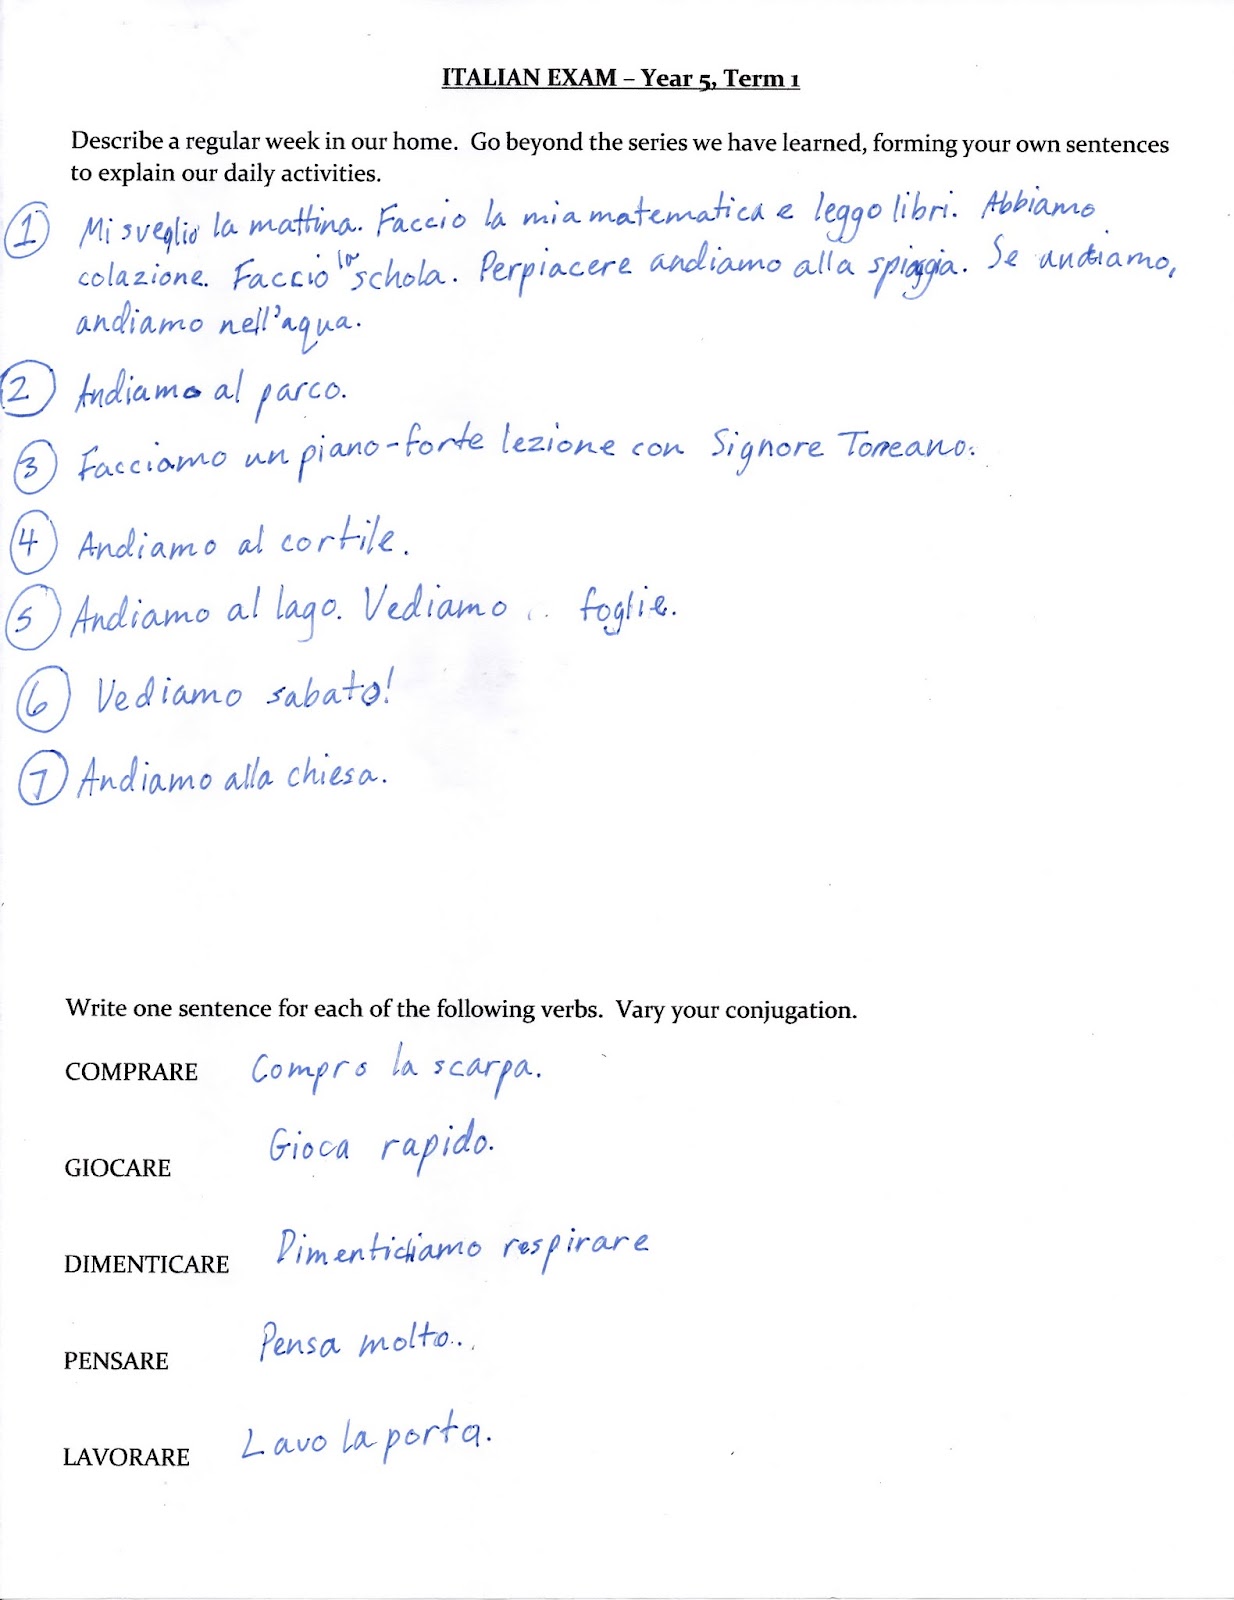 ITALIAN EXAM – Year 5, Term 1
Describe a regular week in our home. Go beyond the series we have learned, forming your own sentences
to explain our daily activities.
1 Mi sveglio la mattina. Faccio la mia matematica e leggo libri. Abbiamo
colazione. Faccio la schola. Perpiacere andiamo alla spiaggia. Se andiamo,
andiamo nell'aqua.
2 Andiamo al parco.
3 Facciamo un piano-forte lezione con Signore Torreano.
4 Andiamo al cortile.
5 Andiamo al lago. Vediamo foglie.
6 Vediamo sabato!
7 Andiamo alla chiesa.
Write one sentence for each of the following verbs. Vary your conjugation.
COMPRARE Compro la scarpa.
GIOCARE Gioca rapido.
DIMENTICARE Dimentichiamo respirare
PENSARE Pensa molto..
LAVORARE Lavo la porta.